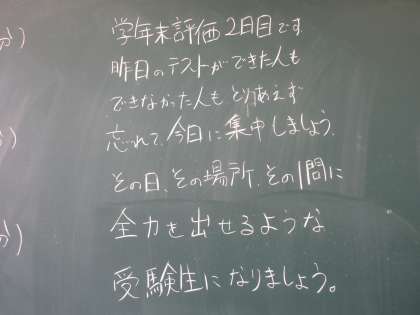 学年末評価2日目です
昨日のテストができた人も
できなかった人もとりあえず
忘れて、今日に集中しましょう。
その日、その場所、その1問に
全力を出せるような
受験生になりましょう。